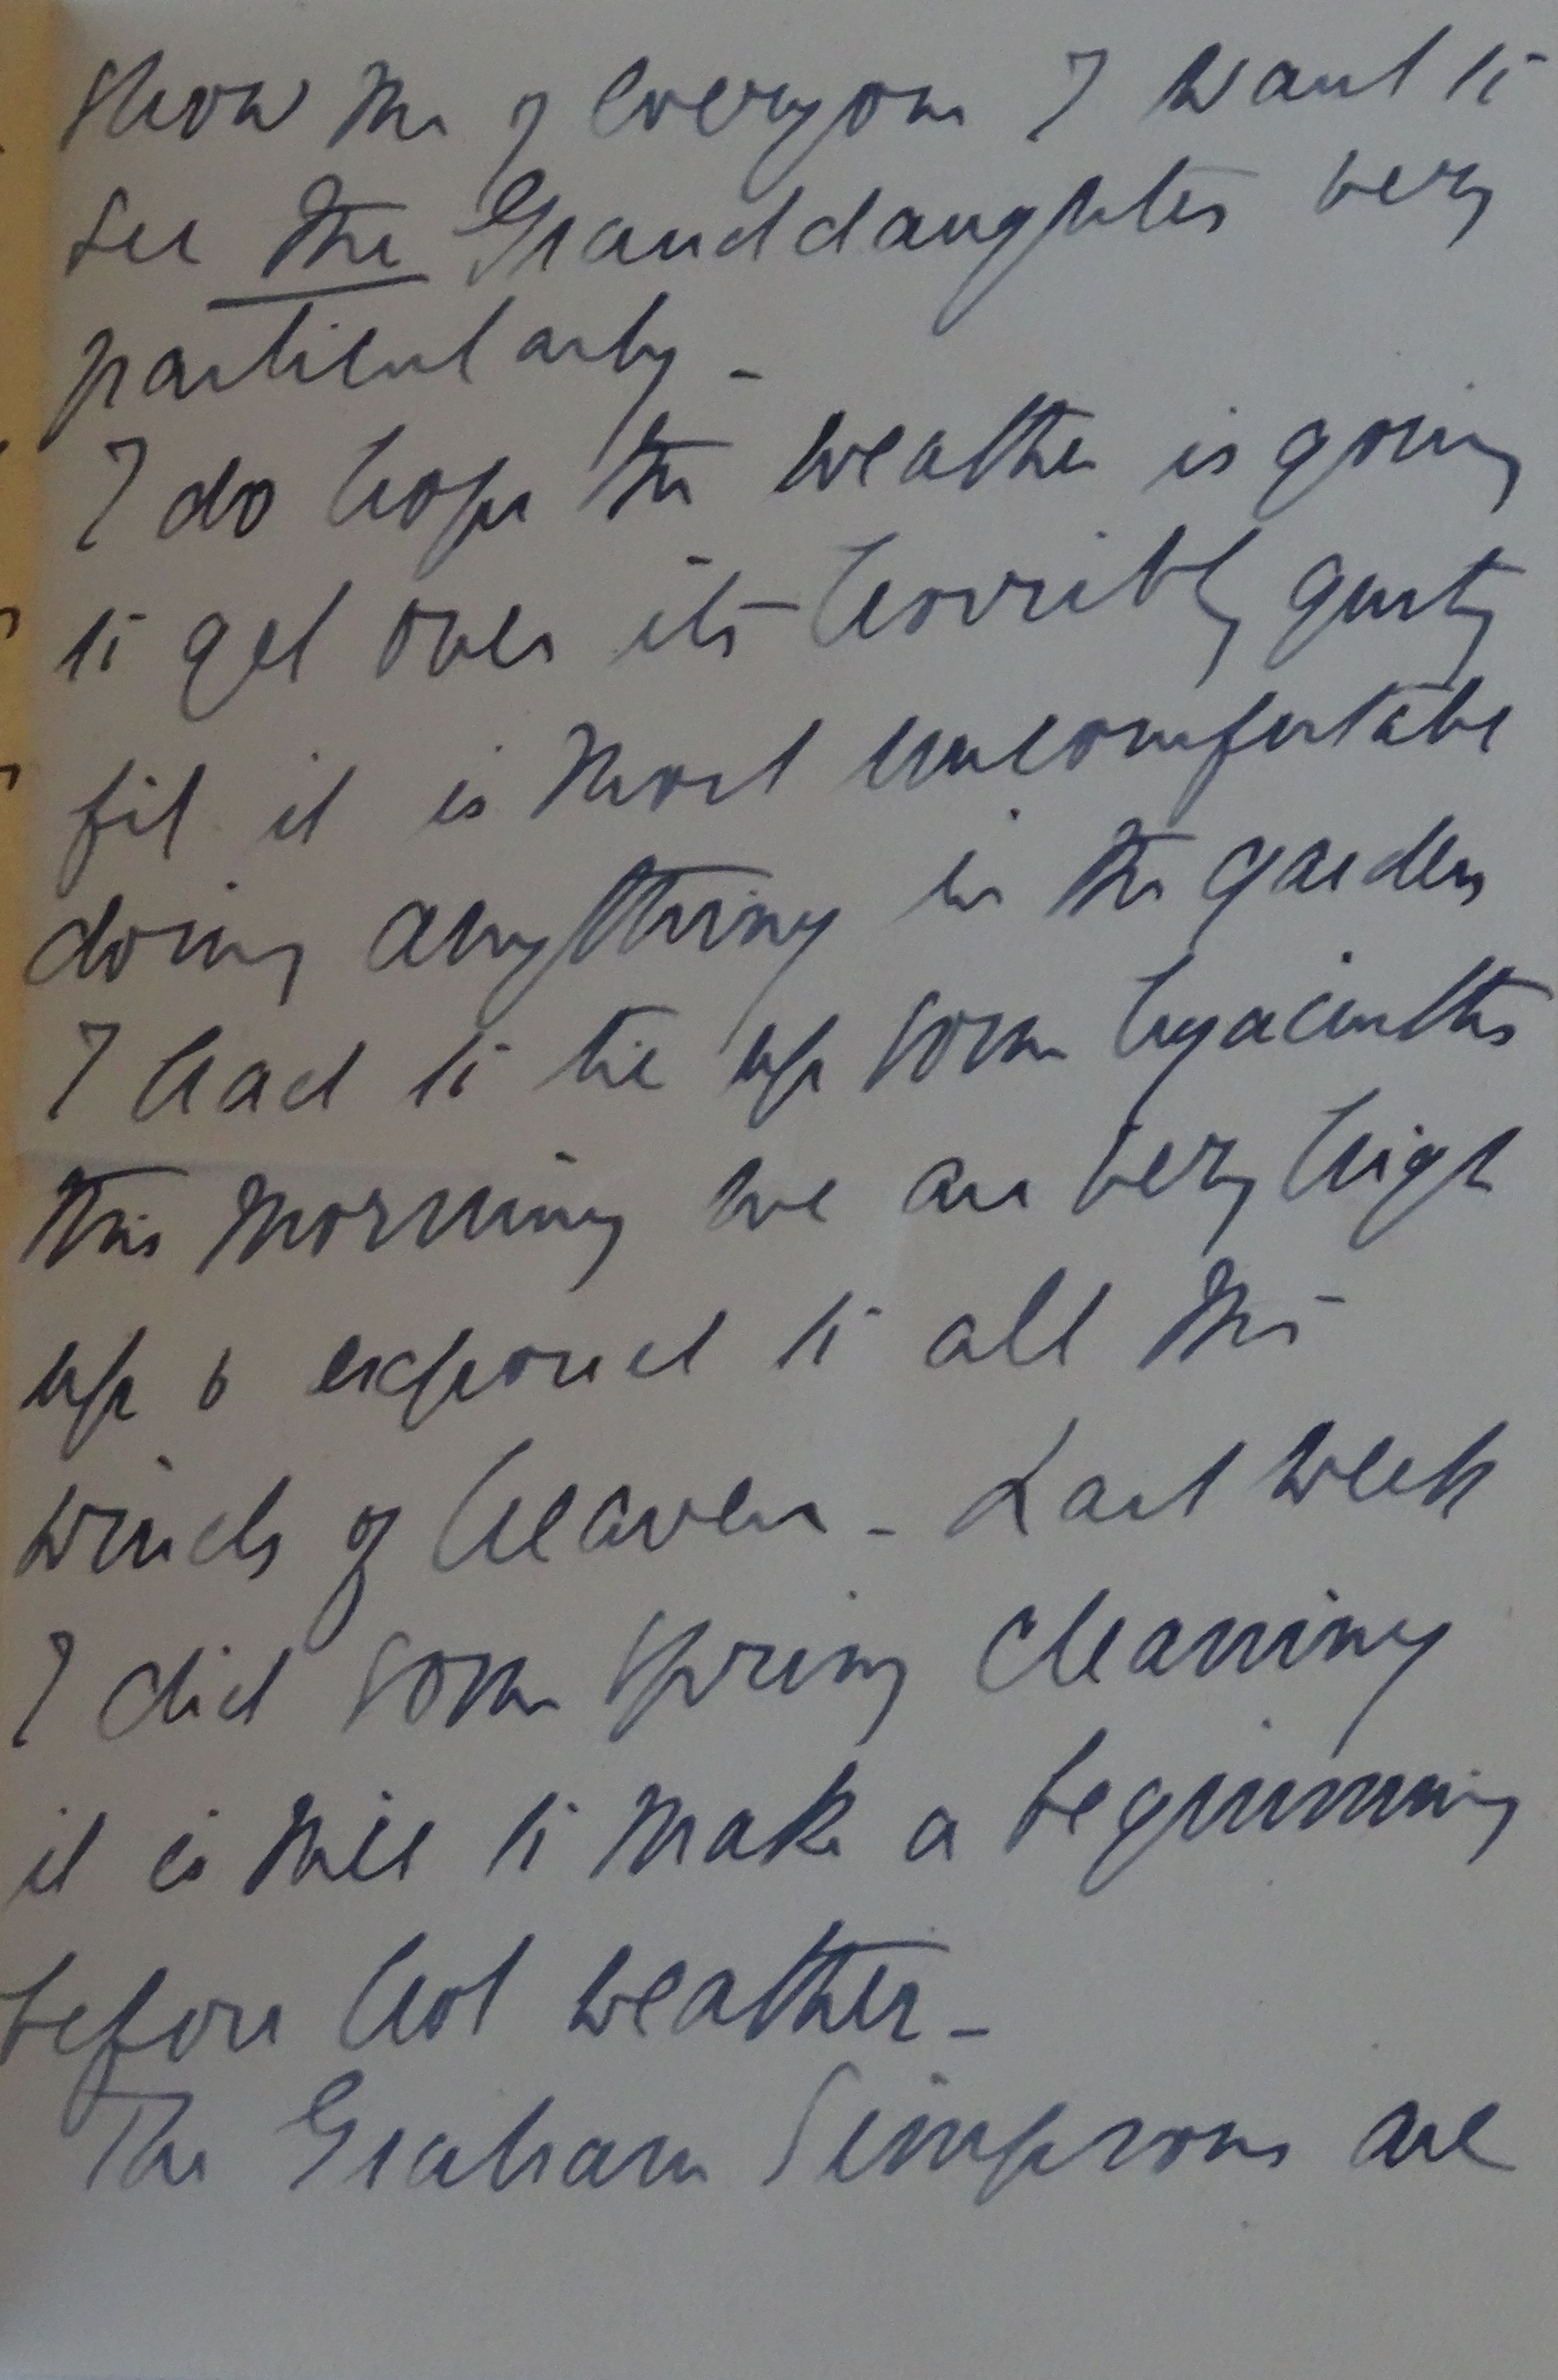 show me of everyone I want to
see the Granddaughter very
particularly -
I do hope the weather is going
to get over its horribly gusty
fit it is most uncomfortable
doing anything in the garden
I had to tie up some hyacinths
this morning we are very high
up & exposed to all the
winds of heaven - Last week
I did some Spring cleaning
it is nice to make a beginning
before hot weather -
The Graham Simpsons are